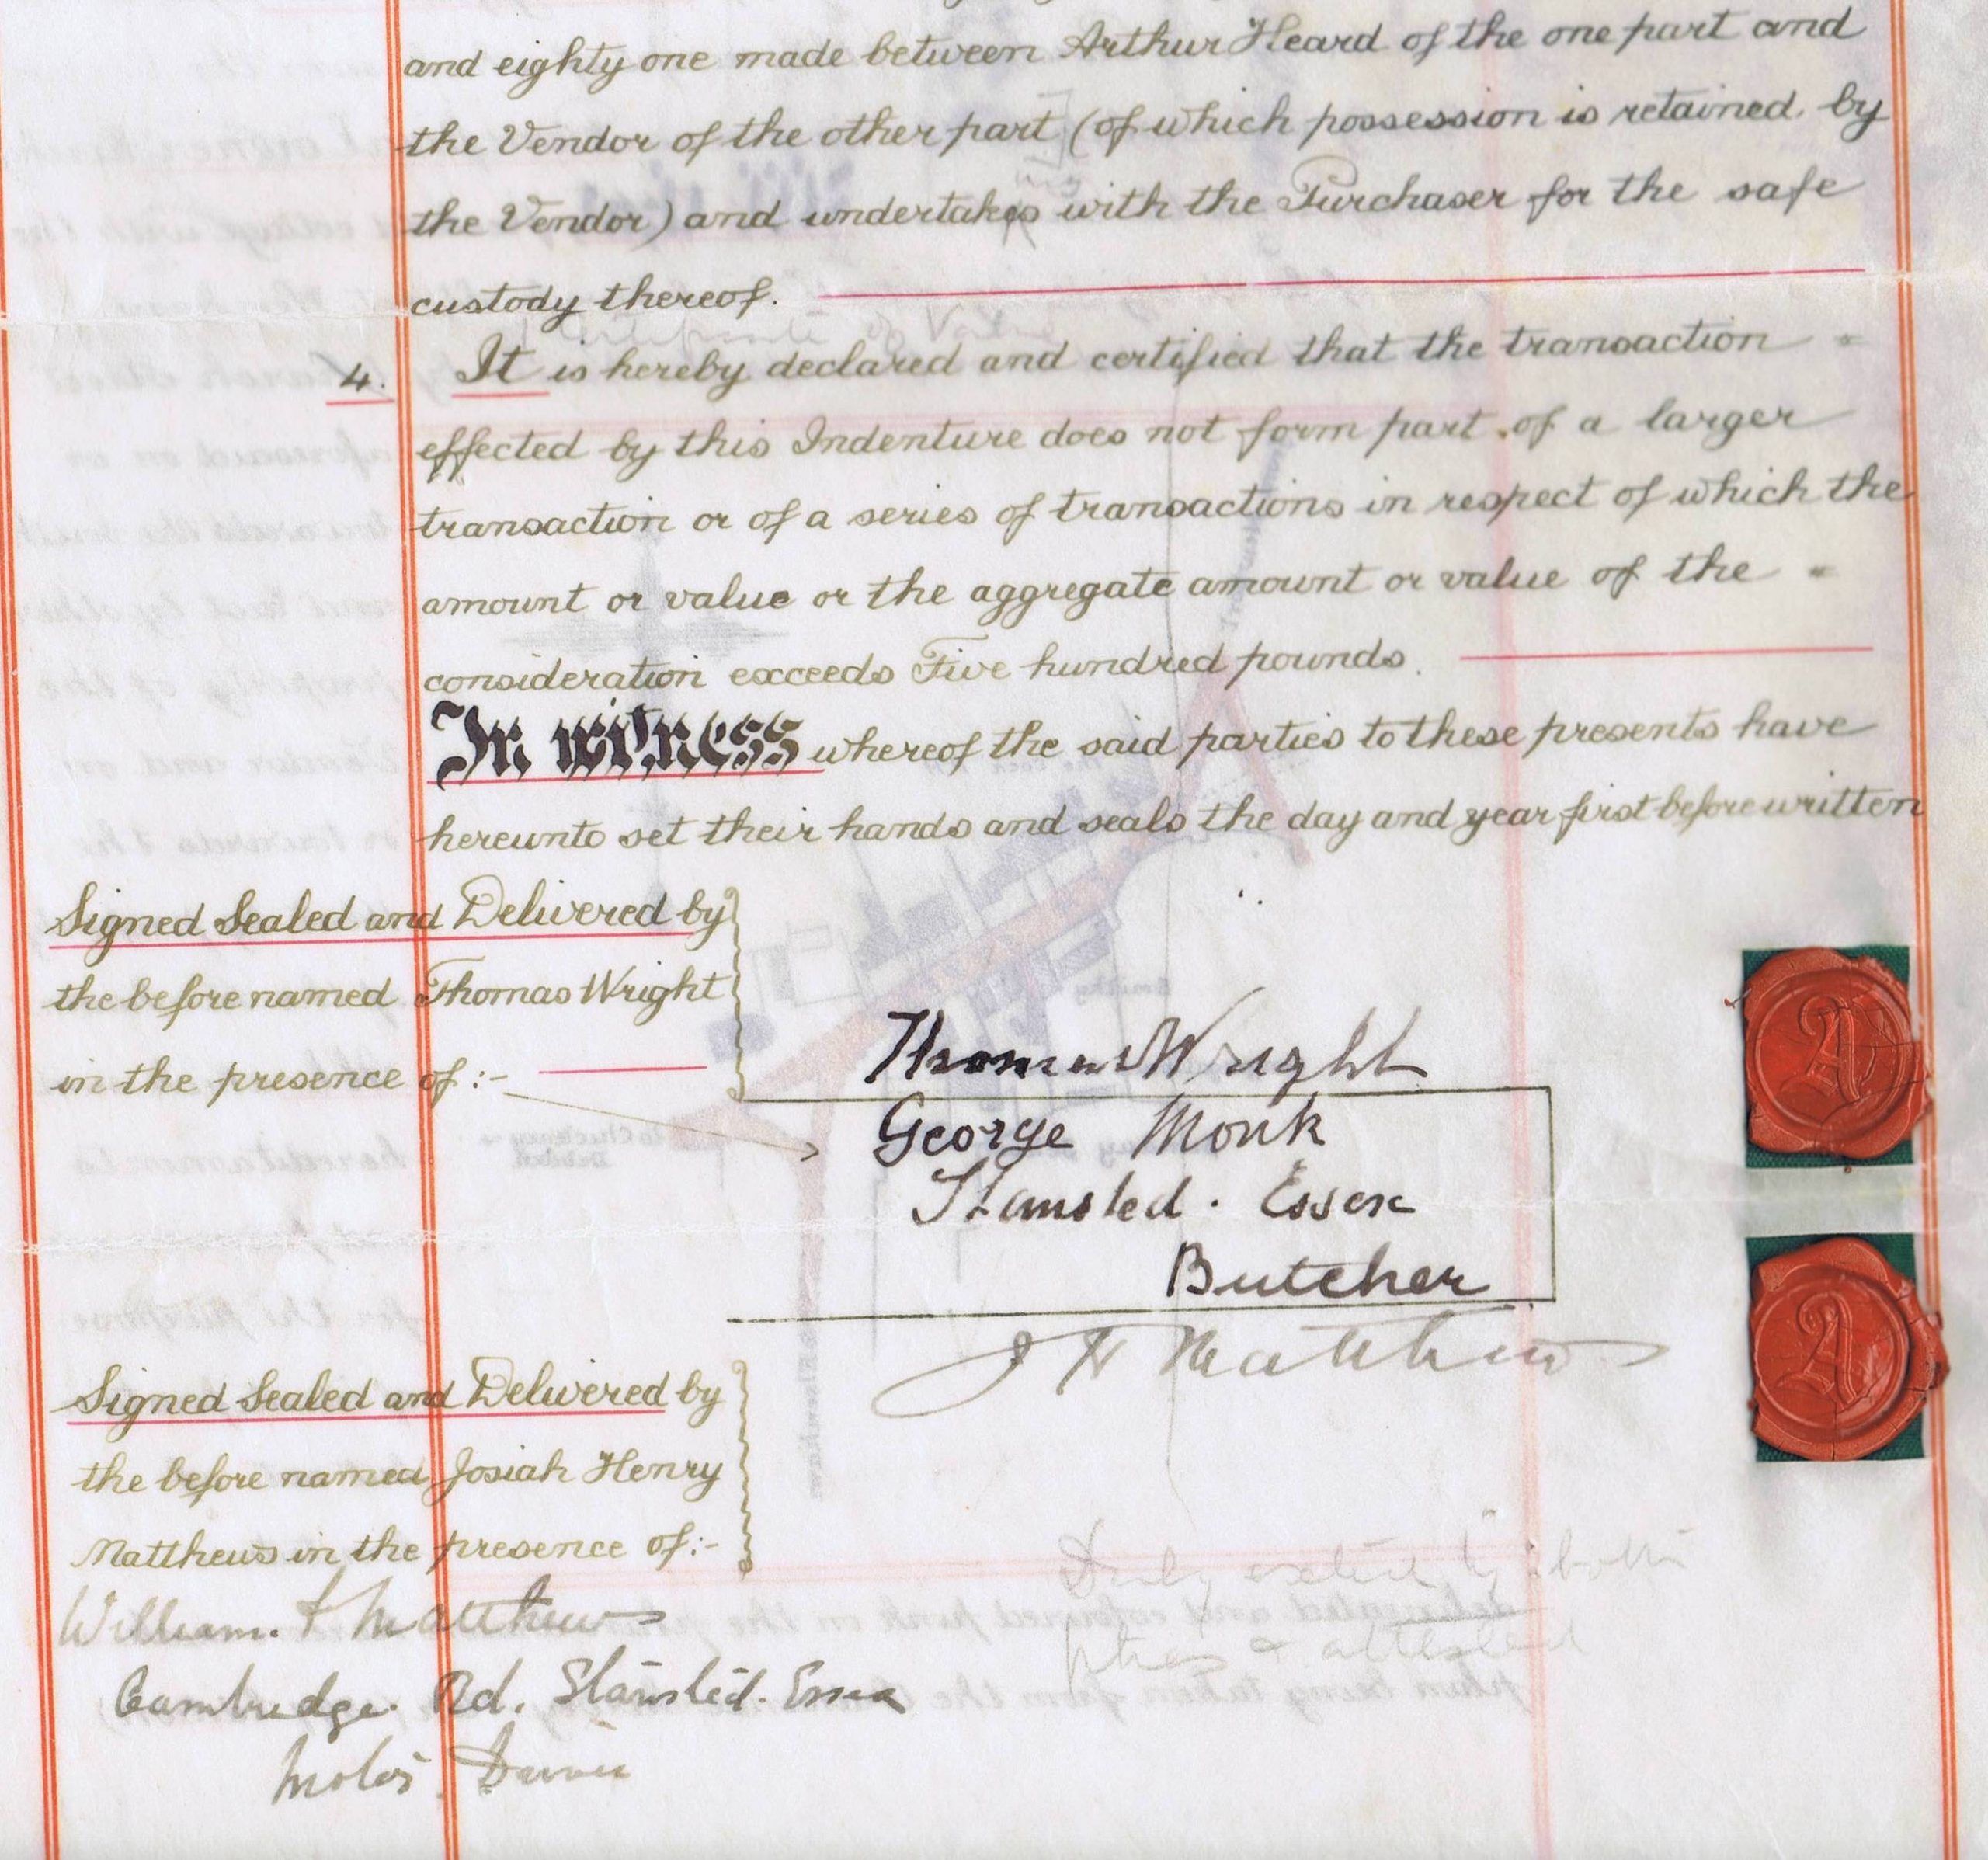 and eighty one made between Arthur Heard of the one part and
the Vendor of the other part (of which possession is retained by
the Vendor) and undertakes with the Purchaser for the safe
custody thereof.
Certificate of Value
4. It is hereby declared and certified that the transaction =
effected by this Indenture does not form part of a larger
transaction or of a series of transactions in respect of which the
amount or value or the aggregate amount or value of the =
consideration exceeds Five hundred pounds.
In witness whereof the said parties to these presents have
hereunto set their hands and seals the day and year first before written
Signed Sealed and Delivered by
the before named Thomas Wright
in the presence of :-
Thomas Wright
George Monk
Stansted. Essex
Butcher
J H Matthews
Signed Sealed and Delivered by
the before named Josiah Henry
Matthews in the presence of :-
William. Matthews
Cambridge. Rd. Stansted. Essex
Motor. Driver
Duly by both
& attested
A
A